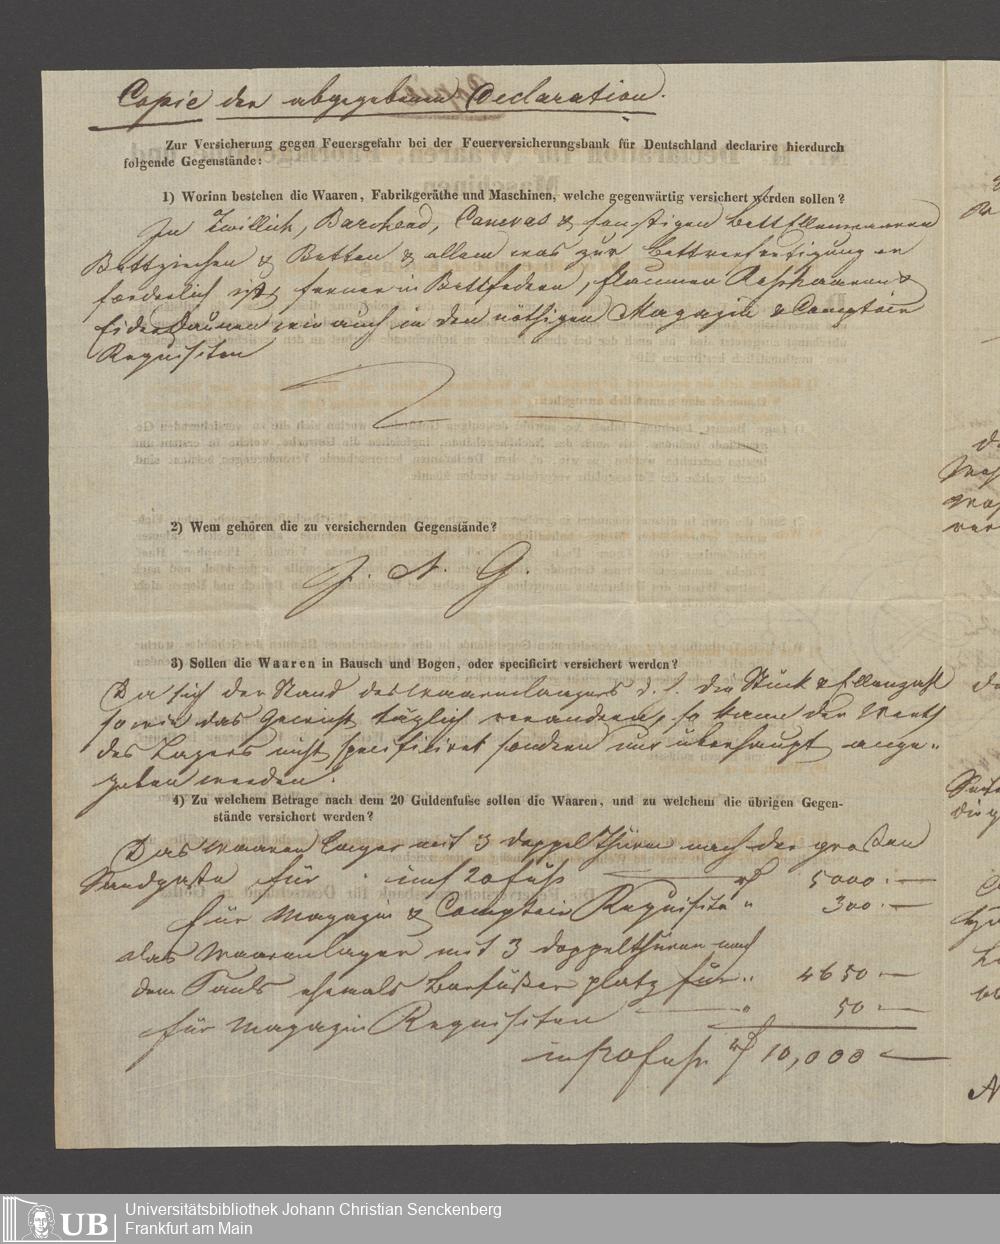 Copie der abgegebenen Declaration.
Zur Versicherung gegen Feuersgefahr bei der Feuerversicherungsbank für Deutschland declarire hierdurch
folgende Gegenstände:
1) Worinn bestehen die Waaren, Fabrikgeräthe und Maschinen, welche gegenwärtig versichert werden sollen?
In Zwillich, Barchend, Canevas & sonstigen Bett Ellenwaaren
& Betten & allem was zur Bettverfertigung er
forderlich ist, ferner in Bettfedern, Flaumen Roßhaaren &
Eiderdaunen wie auch in den nöthigen Magazin & Comptoir
Requisiten
2) Wem gehören die zu versichernden Gegenstände?
J. A. G.
3) Sollen die Waaren in Bausch und Bogen, oder specificirt versichert werden?
Da sich der Stand des Waarenlagers d. h. die Stück & Ellenzahl
so wie das Gewicht täglich verändern, so kann der Werth
des Lagers nicht specificirt sondern nur überhaupt ange=
geben werden.
4) Zu welchem Betrage nach dem 20 Guldenfuße sollen die Waaren, und zu welchem die übrigen Gegen-
stände versichert werden?
Das Waaren Lager mit 3 doppel Thüren nach der großen
Sandgasse für im 20 fuß 5000.—
für Magazin & Comptoir Requisite " 300.—
das Waarenlager mit 3 doppelthüren nach
dem Pauls ehemals Barfüßer platz für " 4650 —
für Magazin Requisiten " 50 —
im 20 fuße 10,000 —
Universitätsbibliothek Johann Christian Senckenberg
Frankfurt am Main
UB